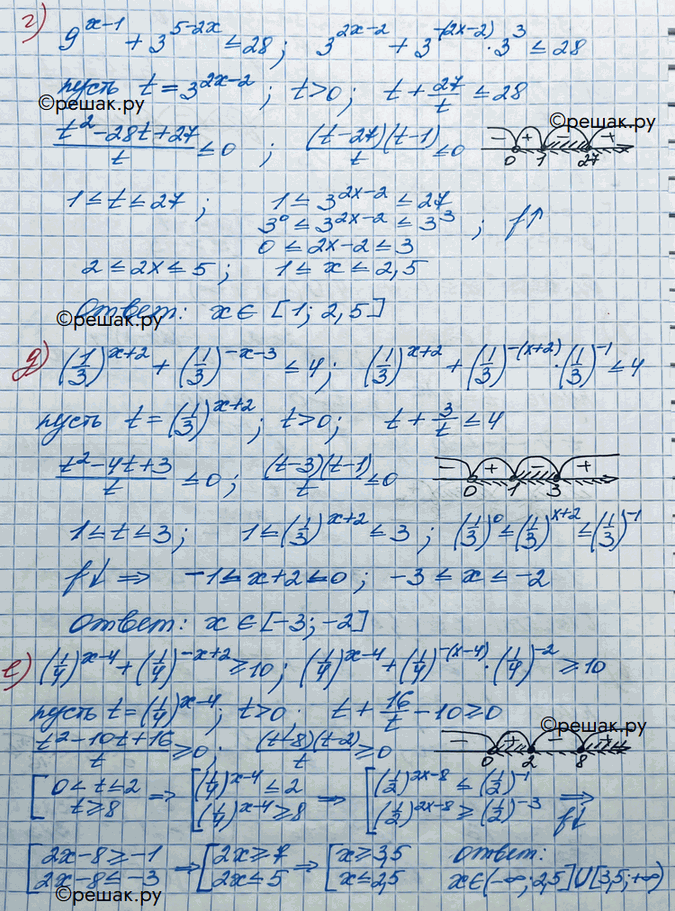 г) 9^(x-1) + 3^(5-2x) ≤ 28; 3^(2x-2) + 3^(-(2x-2)) · 3^3 ≤ 28
пусть t = 3^(2x-2); t>0; t + 27/t ≤ 28
©решак.ру
©решак.ру
(t^2-28t+27)/t ≤ 0; (t-27)(t-1)/t ≤ 0 - + - + 0 1 27
1 ≤ t ≤ 27; 1 ≤ 3^(2x-2) ≤ 27
3^0 ≤ 3^(2x-2) ≤ 3^3; f↑
0 ≤ 2x-2 ≤ 3
2 ≤ 2x ≤ 5; 1 ≤ x ≤ 2,5
Ответ: x ∈ [1; 2,5]
©решак.ру
д) (1/3)^(x+2) + (1/3)^(-x-3) ≤ 4; (1/3)^(x+2) + (1/3)^(-(x+2)) · (1/3)^(-1) ≤ 4
пусть t = (1/3)^(x+2); t>0; t + 3/t ≤ 4
(t^2-4t+3)/t ≤ 0; (t-3)(t-1)/t ≤ 0 - + - + 0 1 3
1 ≤ t ≤ 3; 1 ≤ (1/3)^(x+2) ≤ 3; (1/3)^0 ≤ (1/3)^(x+2) ≤ (1/3)^(-1)
f↓ ⇒ -1 ≤ x+2 ≤ 0; -3 ≤ x ≤ -2
Ответ: x ∈ [-3; -2]
е) (1/4)^(x-4) + (1/4)^(-x+2) ≥ 10; (1/4)^(x-4) + (1/4)^(-(x-4)) · (1/4)^(-2) ≥ 10
пусть t = (1/4)^(x-4); t>0; t + 16/t - 10 ≥ 0
©решак.ру
(t^2-10t+16)/t ≥ 0; (t-8)(t-2)/t ≥ 0 - + - + 0 2 8
[0 < t ≤ 2 ⇒ [(1/4)^(x-4) ≤ 2 ⇒ [(1/2)^(2x-8) ≤ (1/2)^(-1) ⇒
t ≥ 8 (1/4)^(x-4) ≥ 8 (1/2)^(2x-8) ≥ (1/2)^(-3) f↓
[2x-8 ≥ -1 ⇒ [2x ≥ 7 ⇒ [x ≥ 3,5 Ответ:
2x-8 ≤ -3 2x ≤ 5 x ≤ 2,5 x ∈ (-∞; 2,5] ∪ [3,5; +∞)
©решак.ру